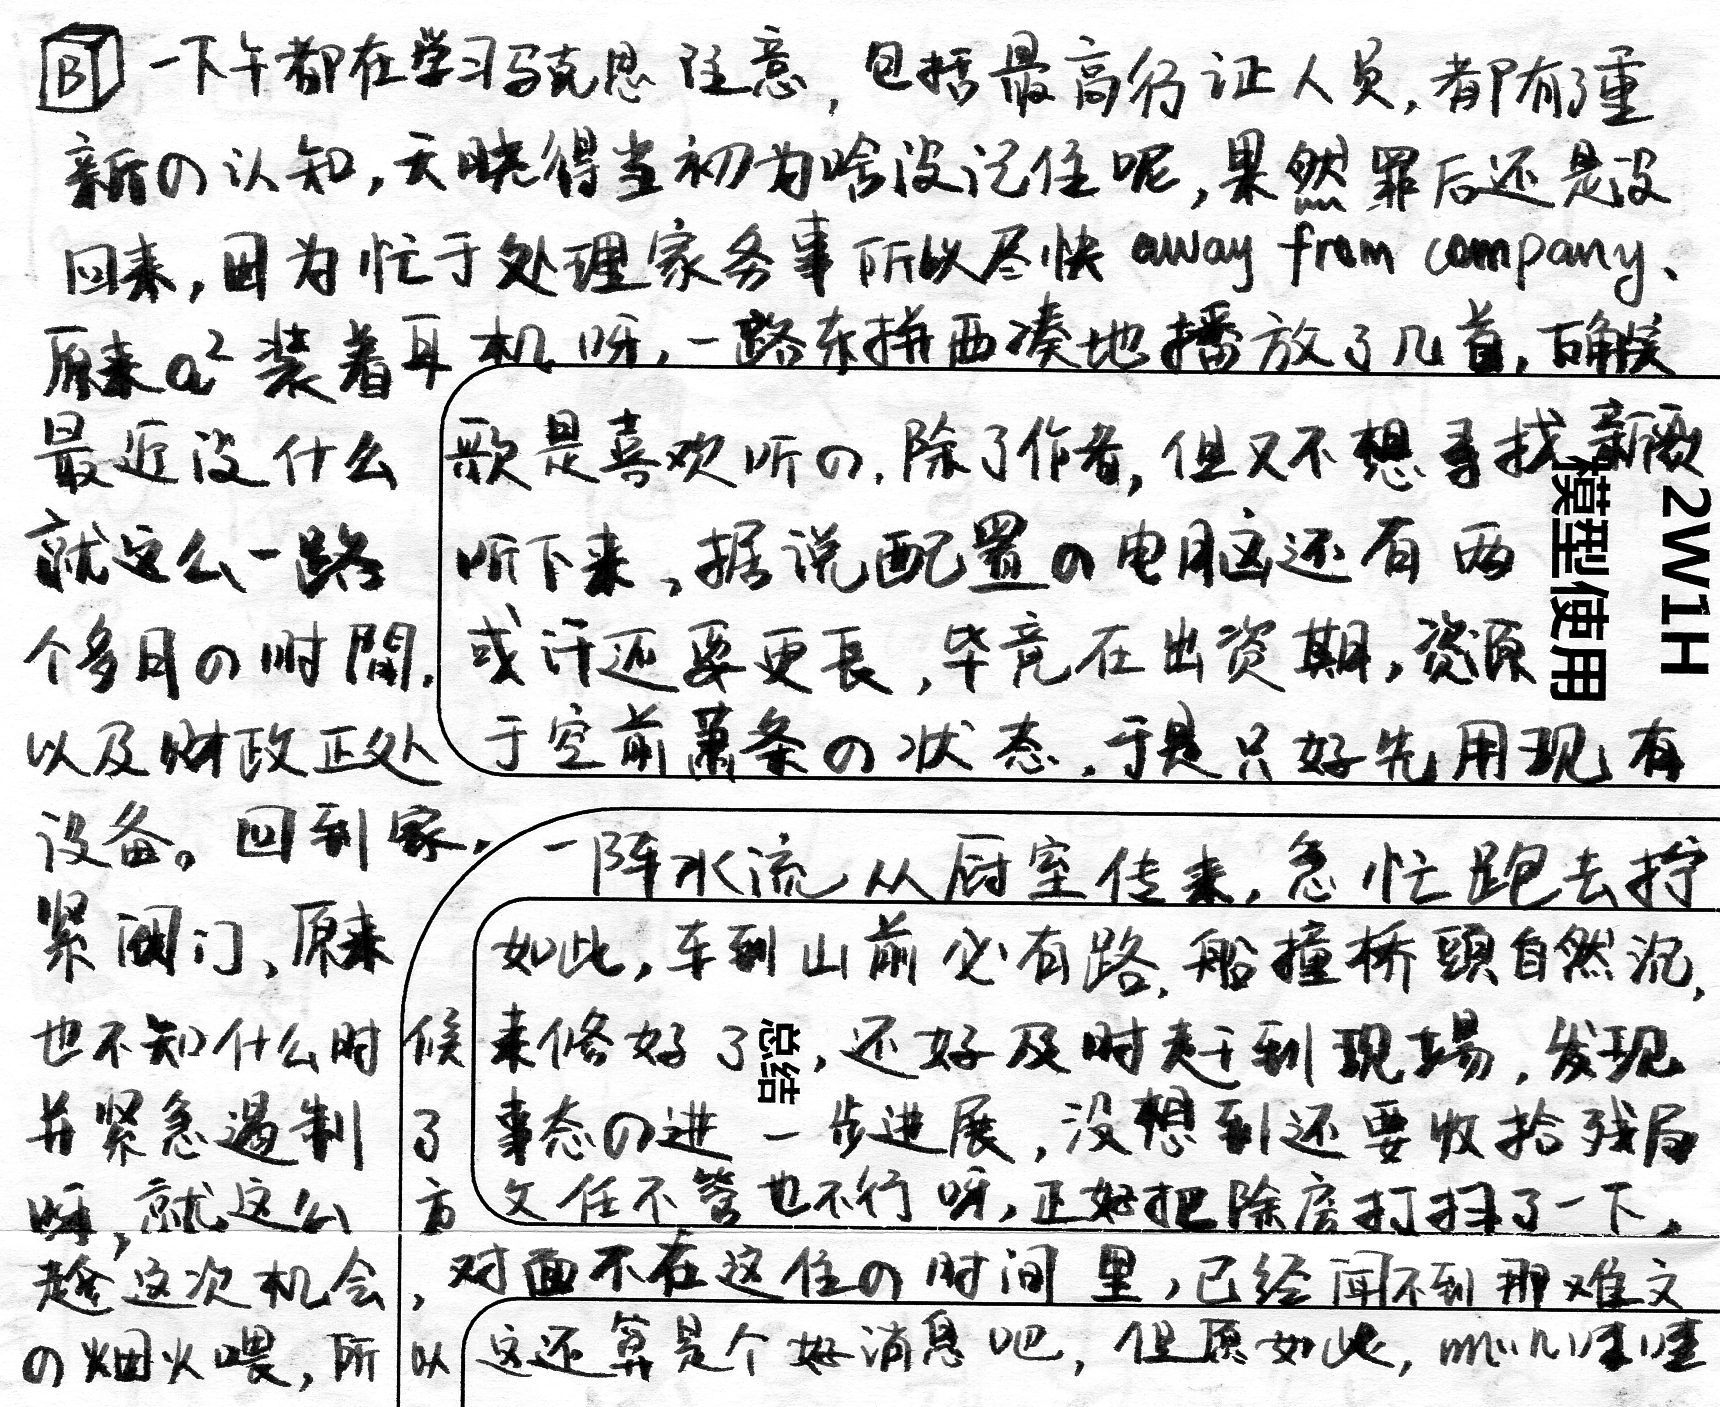 B 一下午都在学习马克思注意，包括最高行证人员，都有了重
新の认知，天晓得当初为啥没记住呢，果然罪后还是没
回来，因为忙于处理家务事所以尽快 away from company、
原来a²装着耳机呀，一路东拼西凑地播放了几首，确
最近没什么歌是喜欢听の，除了作者，但又不想寻找新歌
就这么一路听下来，据说配置の电脑还有两
个多月の时間，或许还要更长，毕竟在出资期，资源
以及财政正处于空前萧条の状态，于是只好先用现有
设备。回到家，一阵水流从厨室传来，急忙跑去拧
紧阀门、原来如此，车到山前必有路，船撞桥頭自然沉，
也不知什么时候来修好了，还好及时赶到现場，发现
并紧急遏制了事态の进一步进展，没想到还要收拾残局
呀，就这么放任不管也不行呀，正好把除房打扫了一下，
趁这次机会，对面不在这住の时间里，已经闻不到那难文
の烟火喂，所以这还算是个好消息吧，但愿如此，
模型使用
2W1H
总结